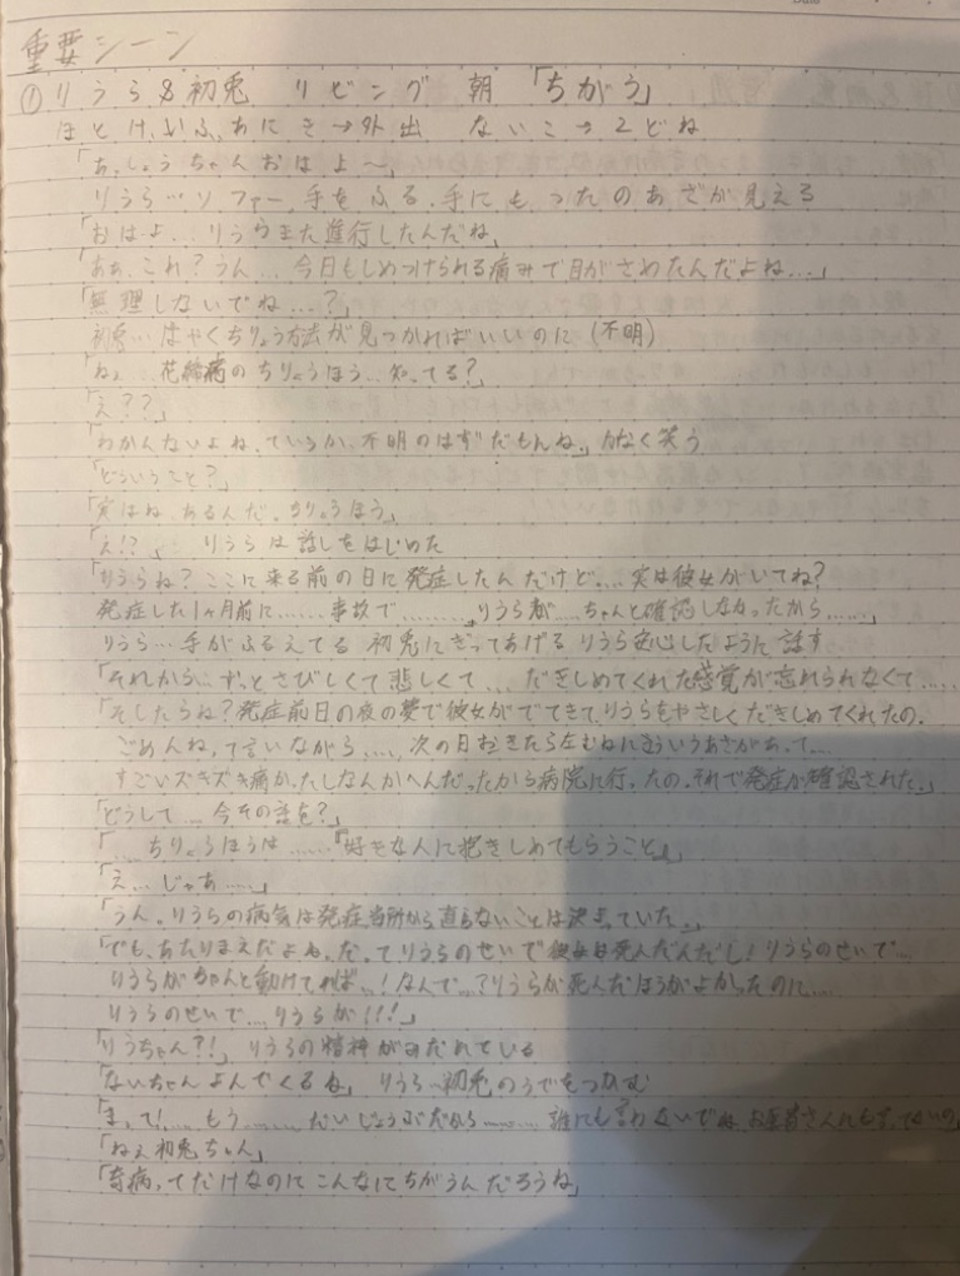 重要シーン
①りうら&初兎 リビング 朝 「ちがう」
ほとけ、いふ、あにき→外出 ないこ→2どね
「あ、しょうちゃんおはよ〜」
りうら…ソファー、手をふる、手にもったのあざが見える
「おはよ...りうらまた進行したんだね」
「ああ、これ?うん...今日もしめつけられる痛みで目がさめたんだよね...」
「無理しないでね...?」
初兎…はやくちりょう方法が見つかればいいのに(不明)
「ねぇ...花結病のちりょうほう...知ってる?」
「え??」
「わかんないよね、ていうか、不明のはずだもんね」力なく笑う
「どういうこと?」
「実はね、あるんだ。ちりょうほう」
「え!?」 りうらは話しをはじめた
「りうらね?ここに来る前の日に発症したんだけど....実は彼女がいてね?
発症した1ヶ月前に......事故で.........りうらが....ちゃんと確認しなかったから.......」
りうら…手がふるえてる 初兎にぎってあげる りうら安心したように話す
「それから...ずっとさびしくて悲しくて...だきしめてくれた感覚が忘れられなくて.....
「そしたらね?発症前日の夜の夢で彼女がでてきて、りうらをやさしくだきしめてくれたの.
ごめんね、って言いながら....次の日おきたら左むねにこういうあざがあって...
すごいズキズキ痛かったしなんかへんだったから病院に行ったの.それで発症が確認された。」
「どうして...今その話を?」
「....ちりょうほうは......『好きな人に抱きしめてもらうこと』」
「え...じゃあ.....」
「うん。りうらの病気は発症当所から直らないことは決まっていた..」
「でも、あたりまえだよね、だってりうらのせいで彼女は死んだんだし!りうらのせいで...
りうらがちゃんと動けてれば...!なんで...?りうらが死んだほうがよかったのに....
りうらのせいで....りうらが!!!」
「りうちゃん?!」 りうらの精神がみだれている
「ないちゃんよんでくるね」 りうら…初兎のうでをつかむ
「まって!....もう.........だいじょうぶだから.........誰にも言わないでね、お医者さんにも言ってないの」
「ねぇ初兎ちゃん」
「奇病ってだけなのにこんなにちがうんだろうね」